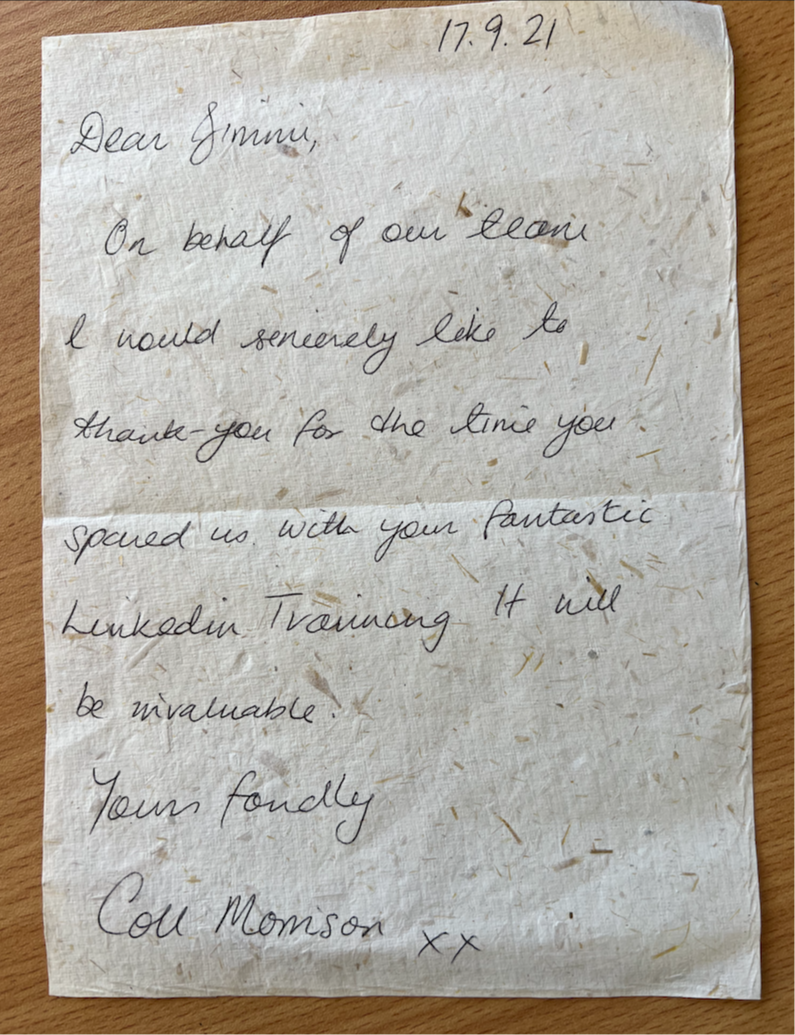 17.9.21
Dear Jimmi,
On behalf of our team
I would sencerely like to
thank-you for the time you
spared us with your fantastic
Linkedin Training It will
be invaluable.
Yours fondly
Coll Morrison xx